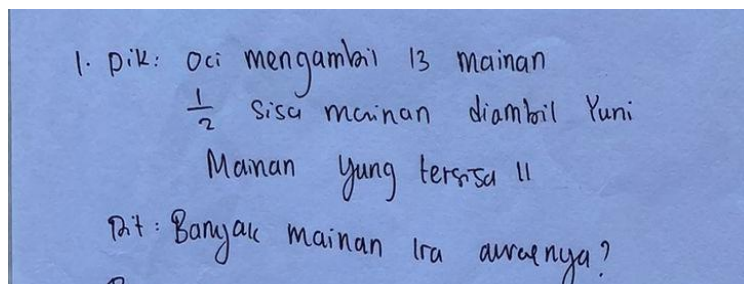 1. Dik: Oci mengambil 13 mainan
1/2 sisa mainan diambil Yuni
Mainan yang tersisa 11
Dit: Banyak mainan Ira awalnya?